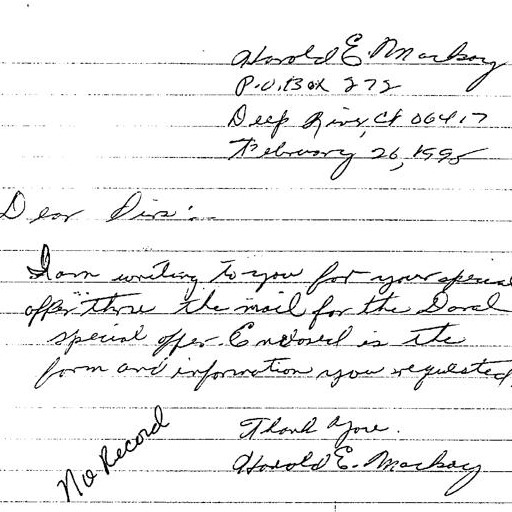 Harold E. Mackay
P.O. Box 272
Deep River, Ct 06417
February 26, 1995
Dear Sirs:
I am writing to you for your special
offer thru the mail for the Doral
special offer Enclosed is the
form and information you requested.
Thank you.
Harold E. Mackay
No Record